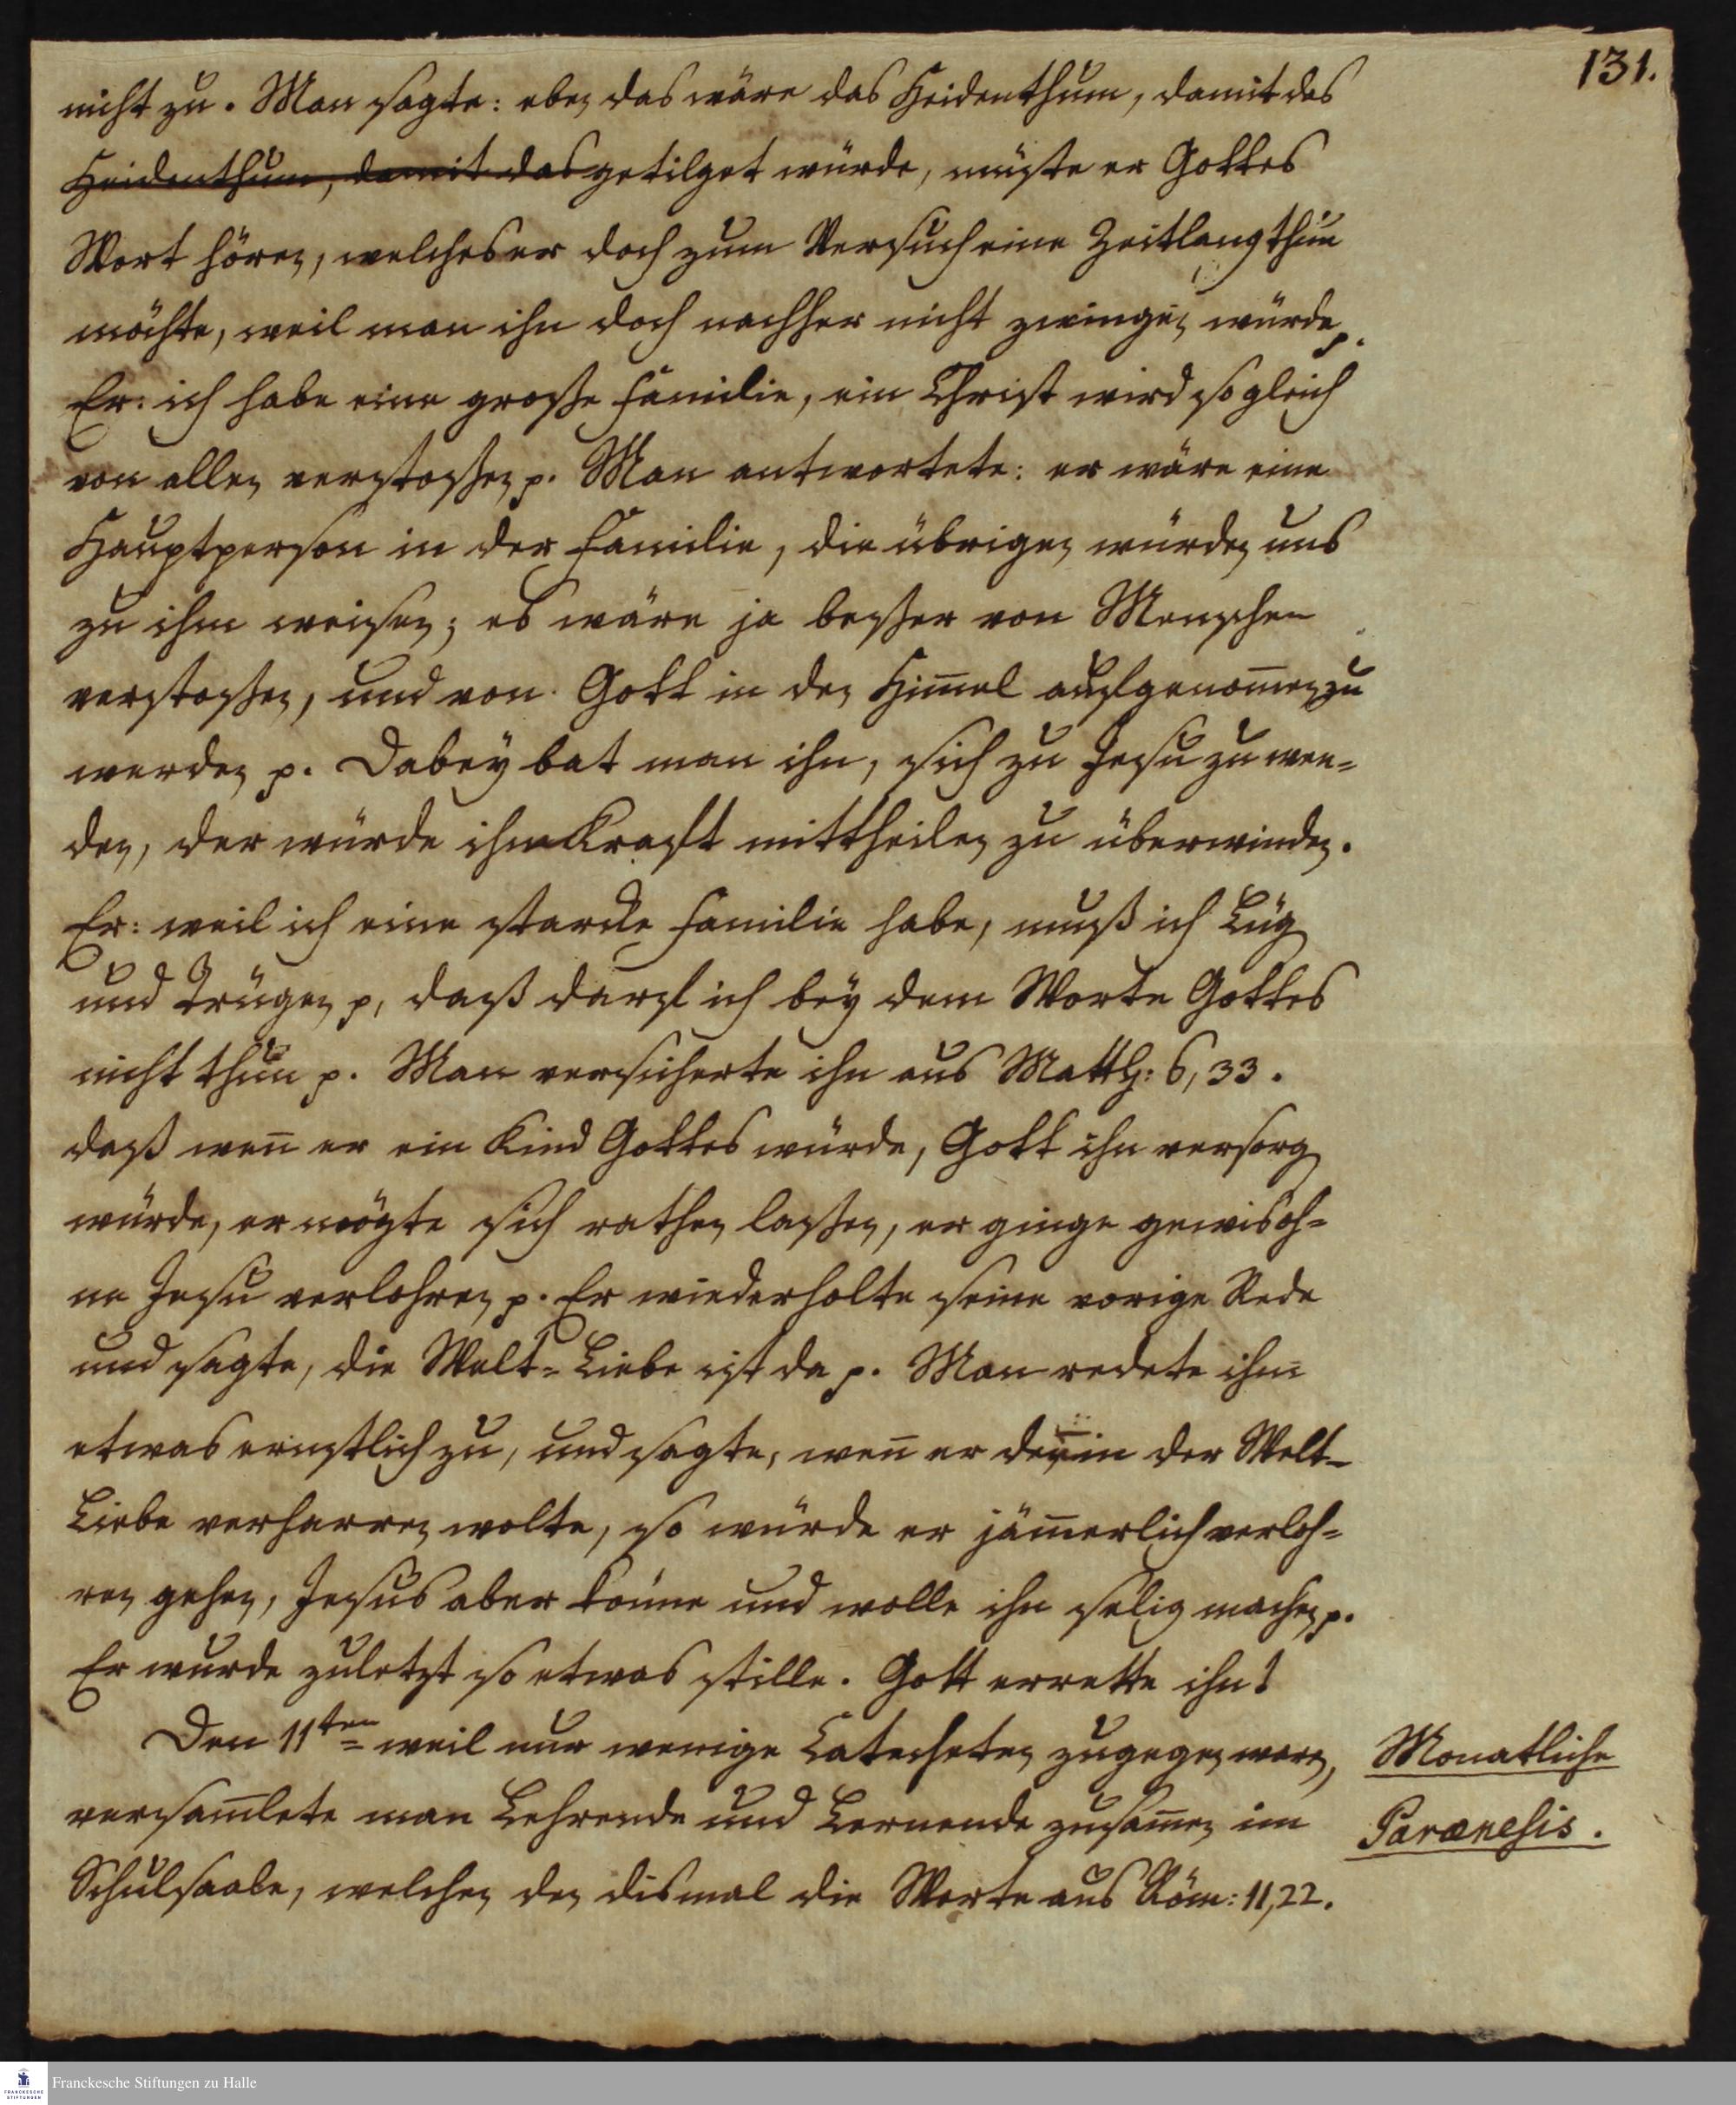 131.
nicht zu. Man sagte: eben das wäre das Heidenthum, damit das
Heidenthum, damit das getilget würde, müste er Gottes
Wort hören, welches er doch zum Versuch eine Zeitlang thun
möchte, weil man ihn doch nachher nicht zwingen würde p.
Er: ich habe eine große Familie, ein Christ wird so gleich
von allen verstoßen p. Man antwortete: er wäre eine
Hauptperson in der Familie, die übrigen würden uns
zu ihm weisen; es wäre ja besser von Menschen
verstoßen, und von Gott in den Him̅el aufgenom̅en zu
werden p. Dabey bat man ihn, sich zu Jesu zu wen=
den, der würde ihm Kraft mittheilen zu überwinden.
Er: weil ich eine starcke Familie habe, muß ich Lügen
und Trügen p, daß darf ich bey dem Worte Gottes
nicht thun p. Man versicherte ihn aus Matth: 6, 33.
daß wen̅ er ein Kind Gottes würde, Gott ihn versorgen
würde, er mögte sich rathen laßen, er ginge gewis oh=
ne Jesu verlohren p. Er wiederholte seine vorige Rede
und sagte, die Welt=Liebe ist da p. Man redete ihm
etwas ernstlich zu, und sagte, wen̅ er in der Welt=
Liebe verharren wolte, so würde er jäm̅erlich verloh=
ren gehen, Jesus aber könne und wolle ihn selig machen p.
Er wurde zuletzt so etwas stille. Gott errette ihn!
Den 11ten weil nur wenige Catecheten zugegen waren,
versam̅lete man Lehrende und Lernende zusam̅en im
Schulsaale, welchen den dismal die Worte aus Röm: 11,22.
Monatliche
Parænesis.
Franckesche Stiftungen zu Halle
FRANCKESCHE
STIFTUNGEN